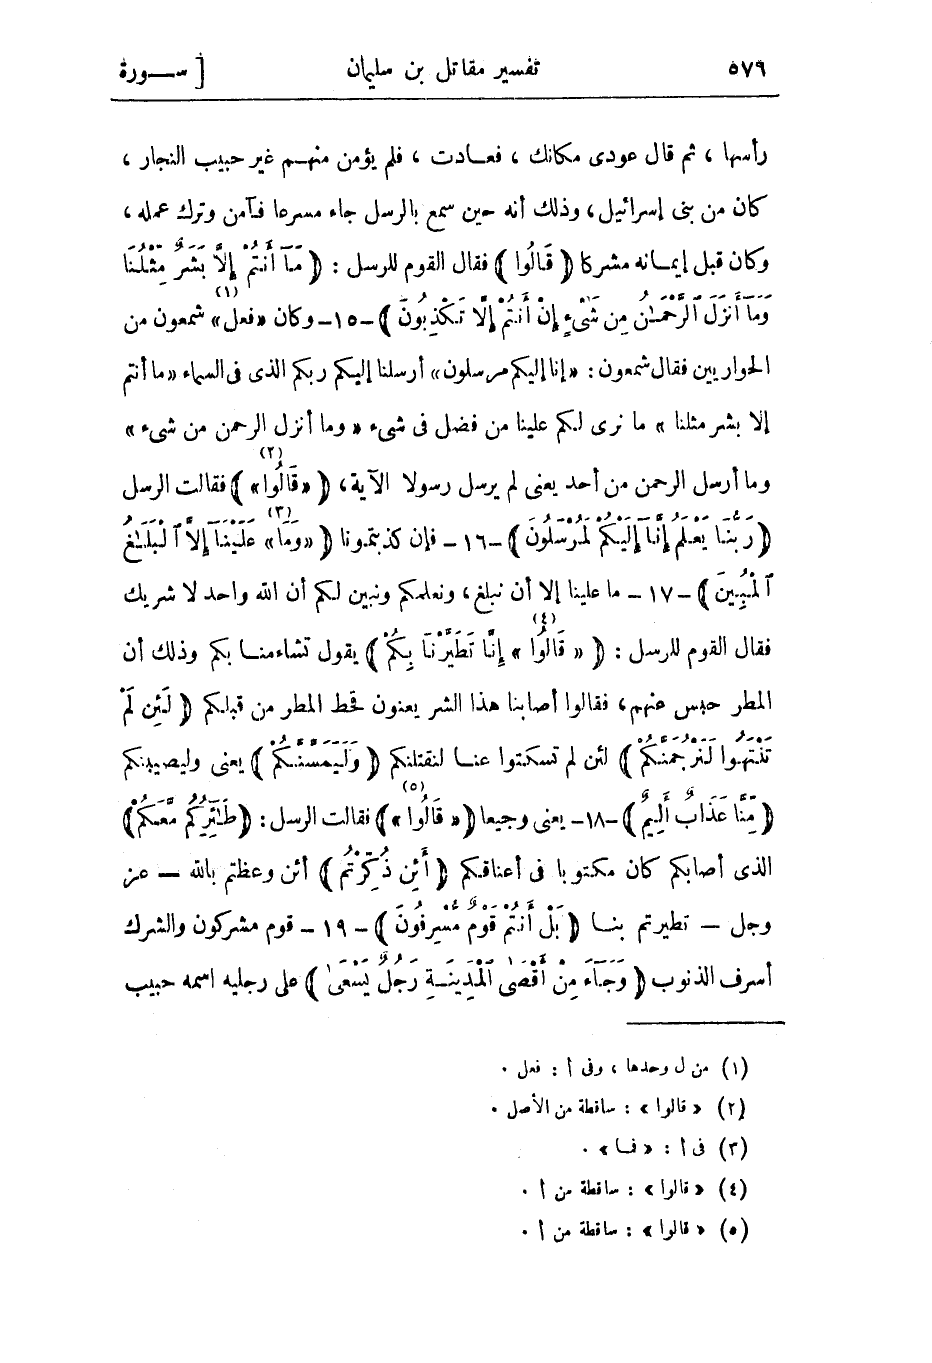 ٥٧٩ تفسير مقاتل بن سليمان [ ســورة
رأسها ، ثم قال عودى مكانك ، فعـادت ، فلم يؤمن منهـم غير حبيب النجار ،
كان من بنى إسرائيل ، وذلك أنه حين سمع بالرسل جاء مسرعا فآمن وترك عمله ،
وكان قبل إيمـانه مشركا ( قَالُوا ) فقال القوم للرسل : ( مَآ أَنتُمْ إِلَّا بَشَرٌ مِّثْلُنَا
وَمَآ أَنزَلَ ٱلرَّحْمَـٰنُ مِن شَىْءٍ إِنْ أَنتُمْ إِلَّا تَكْذِبُونَ ) -١٥- وكان «فعل» (١) شمعون من
الحواريين فقال شمعون : «إنا إليكم مرسلون» أرسلنا إليكم ربكم الذى فى السماء «ما أنتم
إلا بشر مثلنا » ما نرى لكم علينا من فضل فى شىء « وما أنزل الرحمن من شىء »
وما أرسل الرحمن من أحد يعنى لم يرسل رسولا الآية ، ( «قَالُوا» (٢) ) فقالت الرسل
( رَبُّنَا يَعْلَمُ إِنَّآ إِلَيْكُمْ لَمُرْسَلُونَ ) -١٦- فإن كذبتمونا ( «وَمَا» (٣) عَلَيْنَآ إِلَّا ٱلْبَلَـٰغُ
ٱلْمُبِينُ ) -١٧- ما علينا إلا أن نبلغ ، ونعلمكم ونبين لكم أن الله واحد لا شريك
فقال القوم للرسل : ( « قَالُوٓا » (٤) إِنَّا تَطَيَّرْنَا بِكُمْ ) يقول تشاءمنـا بكم وذلك أن
المطر حبس عنهم ، فقالوا أصابنا هذا الشر يعنون قحط المطر من قبلكم ( لَئِن لَّمْ
تَنتَهُوا لَنَرْجُمَنَّكُمْ ) لئن لم تسكتوا عنـا لنقتلنكم ( وَلَيَمَسَّنَّكُمْ ) يعنى وليصيبنكم
( مِّنَّا عَذَابٌ أَلِيمٌ ) -١٨- يعنى وجيعا ( « قَالُوا » (٥) ) فقالت الرسل : ( طَـٰٓئِرُكُم مَّعَكُمْ )
الذى أصابكم كان مكتوبا فى أعناقكم ( أَئِن ذُكِّرْتُم ) أئن وعظتم بالله — عز
وجل — تطيرتم بنـا ( بَلْ أَنتُمْ قَوْمٌ مُّسْرِفُونَ ) -١٩- قوم مشركون والشرك
أسرف الذنوب ( وَجَآءَ مِنْ أَقْصَى ٱلْمَدِينَـةِ رَجُلٌ يَسْعَىٰ ) على رجليه اسمه حبيب
(١) من ل وحدها ، وفى أ : فعل .
(٢) « قالوا » : ساقطة من الأصل .
(٣) فى أ : « فـا » .
(٤) « قالوا » : ساقطة من أ .
(٥) « قالوا » : ساقطة من أ .